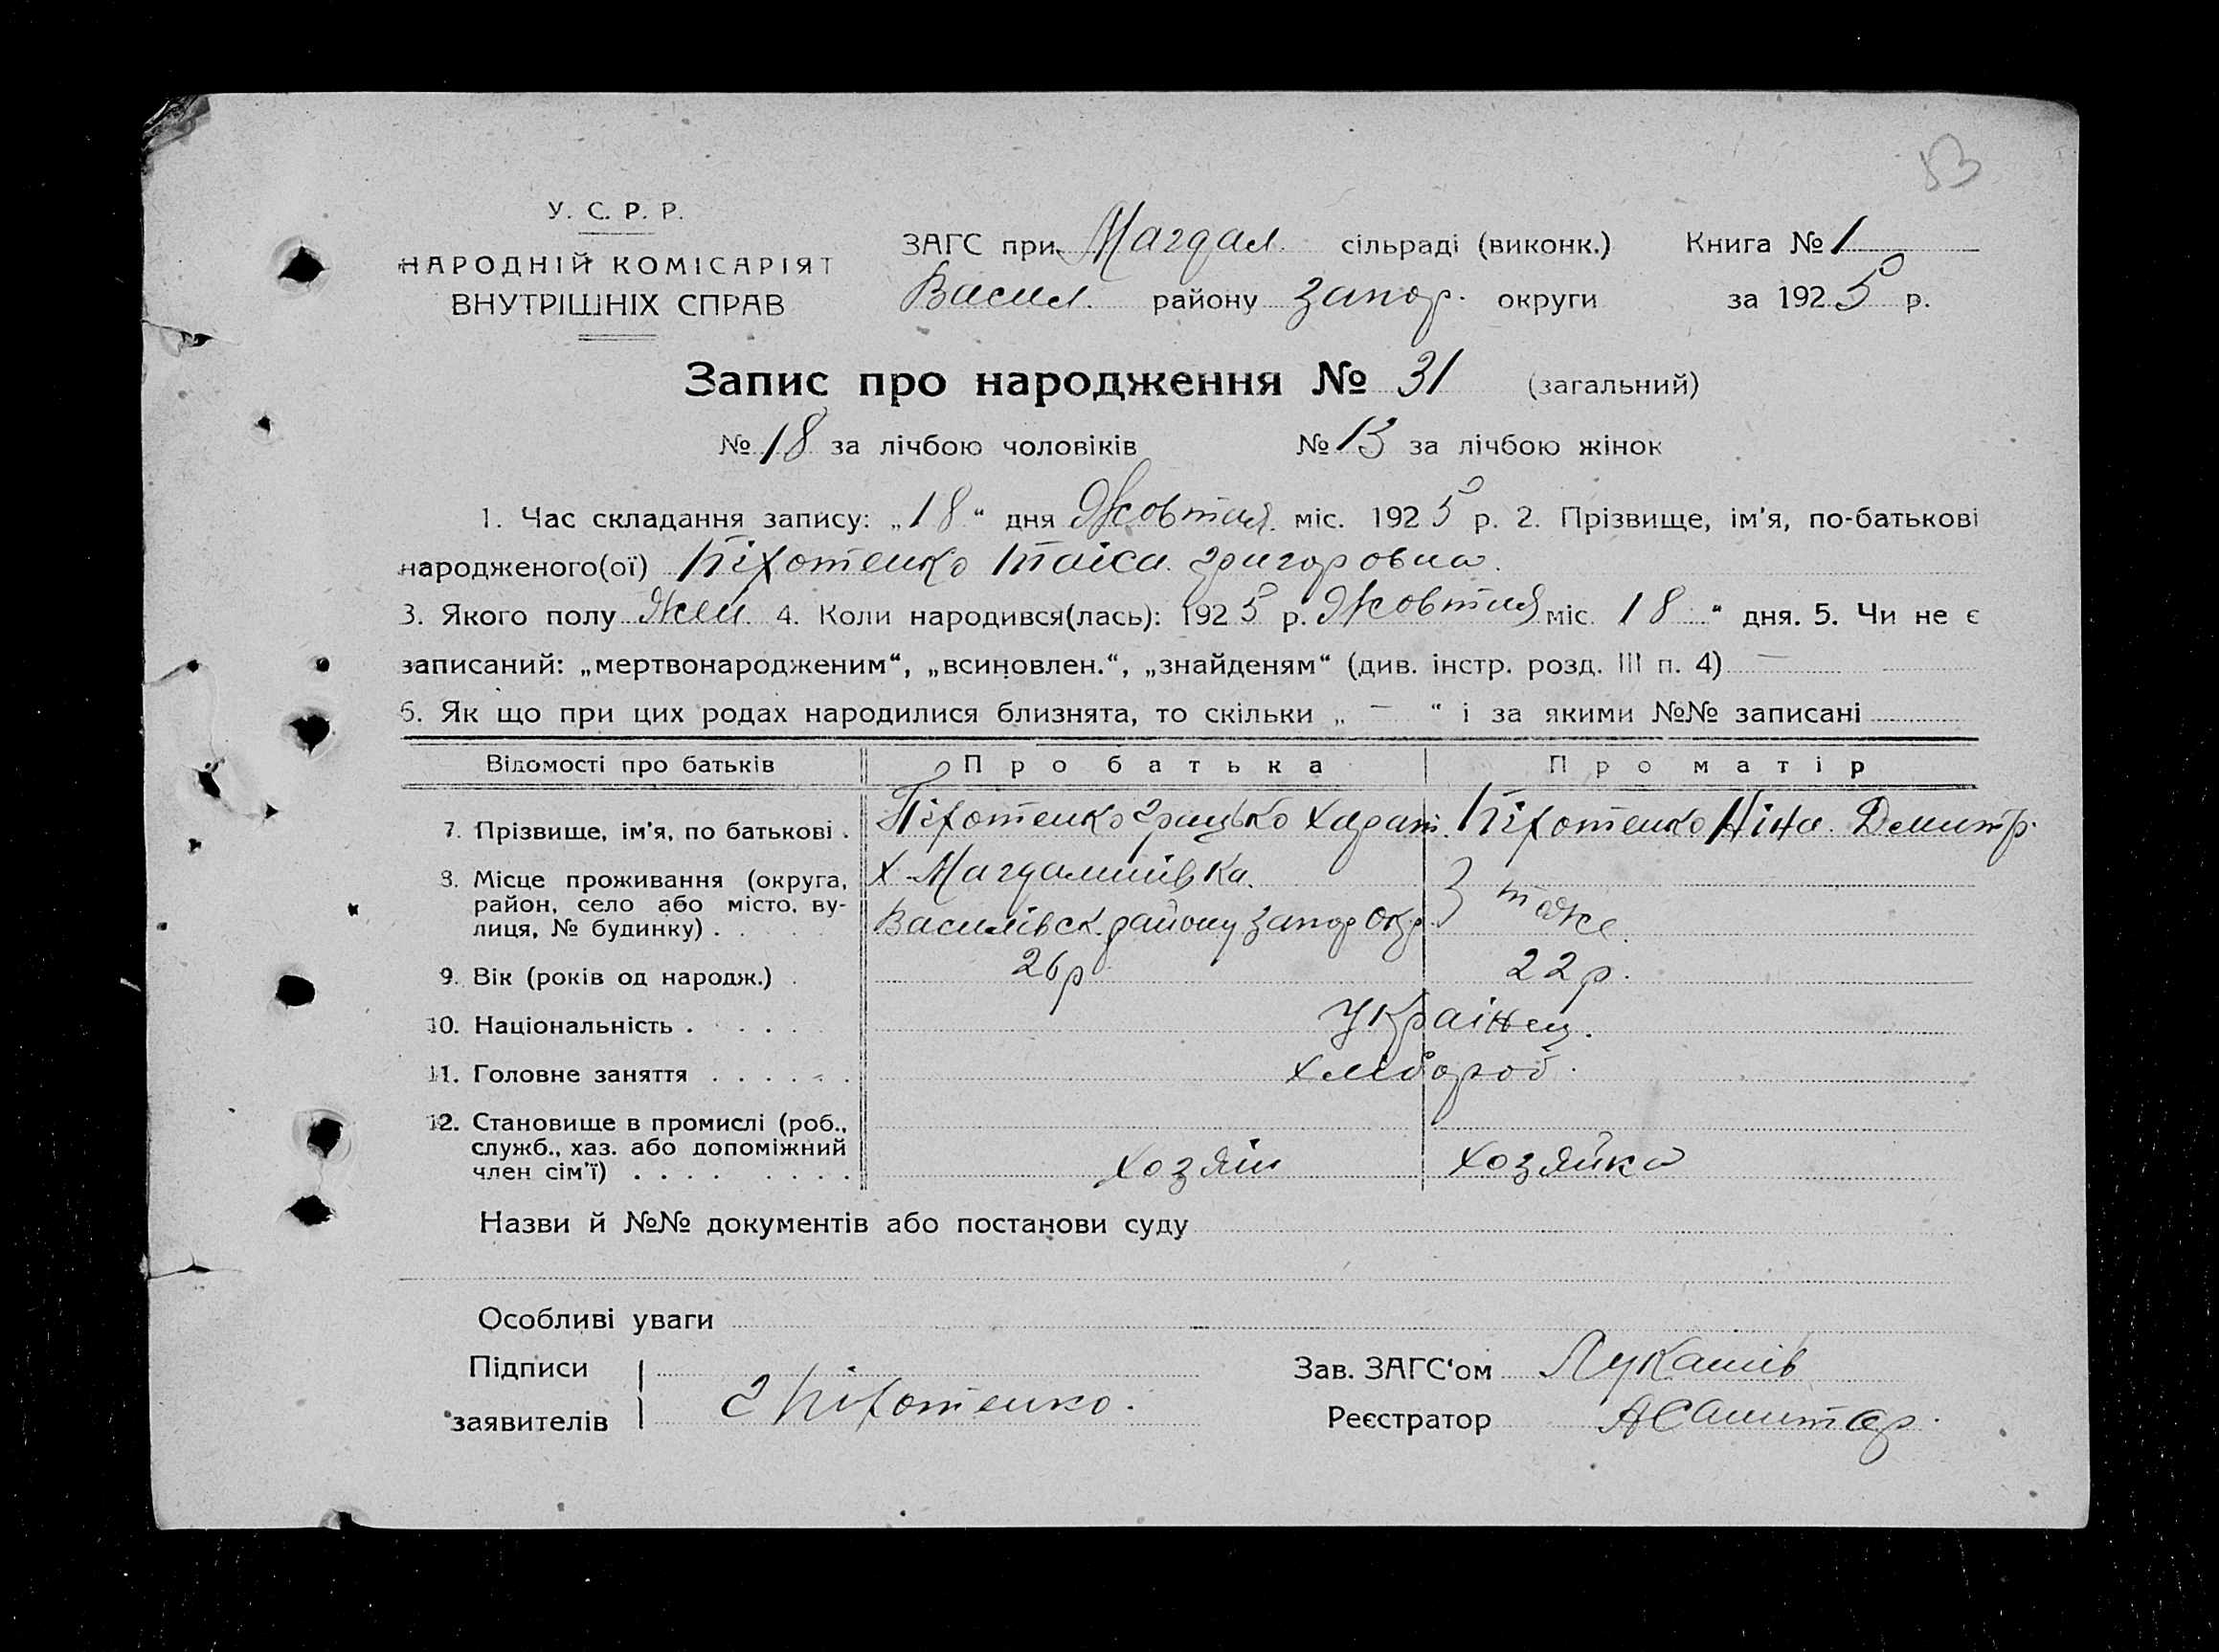 53
У. С. Р. Р.
НАРОДНІЙ КОМІСАРІЯТ
ВНУТРІШНІХ СПРАВ
ЗАГС при Магдал. сільраді (виконк.) Книга № 1
Васил. району Запор. округи за 1925 р.
Запис про народження № 31 (загальний)
№ 18 за лічбою чоловіків № 13 за лічбою жінок
1. Час складання запису: „18“ дня Жовтня міс. 1925 р. 2. Прізвище, ім'я, по-батькові
народженого(ої) Піхотенко Таіса Григоровна.
3. Якого полу Жен. 4. Коли народився(лась): 1925 р. Жовтня міс. 18 “ дня. 5. Чи не є
записаний: „мертвонародженим“, „всиновлен.“, „знайденям“ (див. інстр. розд. III п. 4) —
6. Як що при цих родах народилися близнята, то скільки „ — “ і за якими №№ записані
Відомості про батьків Про батька Про матір
7. Прізвище, ім'я, по батькові . Піхотенко Грицько Харит. Піхотенко Ніна Демитр.
8. Місце проживання (округа, х Магдалинівка.
район, село або місто, ву- тоже
лиця, № будинку) . . . Василівск. району Запор Окр.
9. Вік (років од народж.) . 26 р 22 р.
10. Національність . . . . . Українец.
11. Головне заняття . . . . . . Хлібороб.
12. Становище в промислі (роб.,
служб., хаз. або допоміжний
член сім'ї) . . . . . . . . Хозяїн Хозяйка
Назви й №№ документів або постанови суду
Особливі уваги
Підписи Зав. ЗАГС'ом Лукашів
заявителів Г Піхотенко. Реєстратор